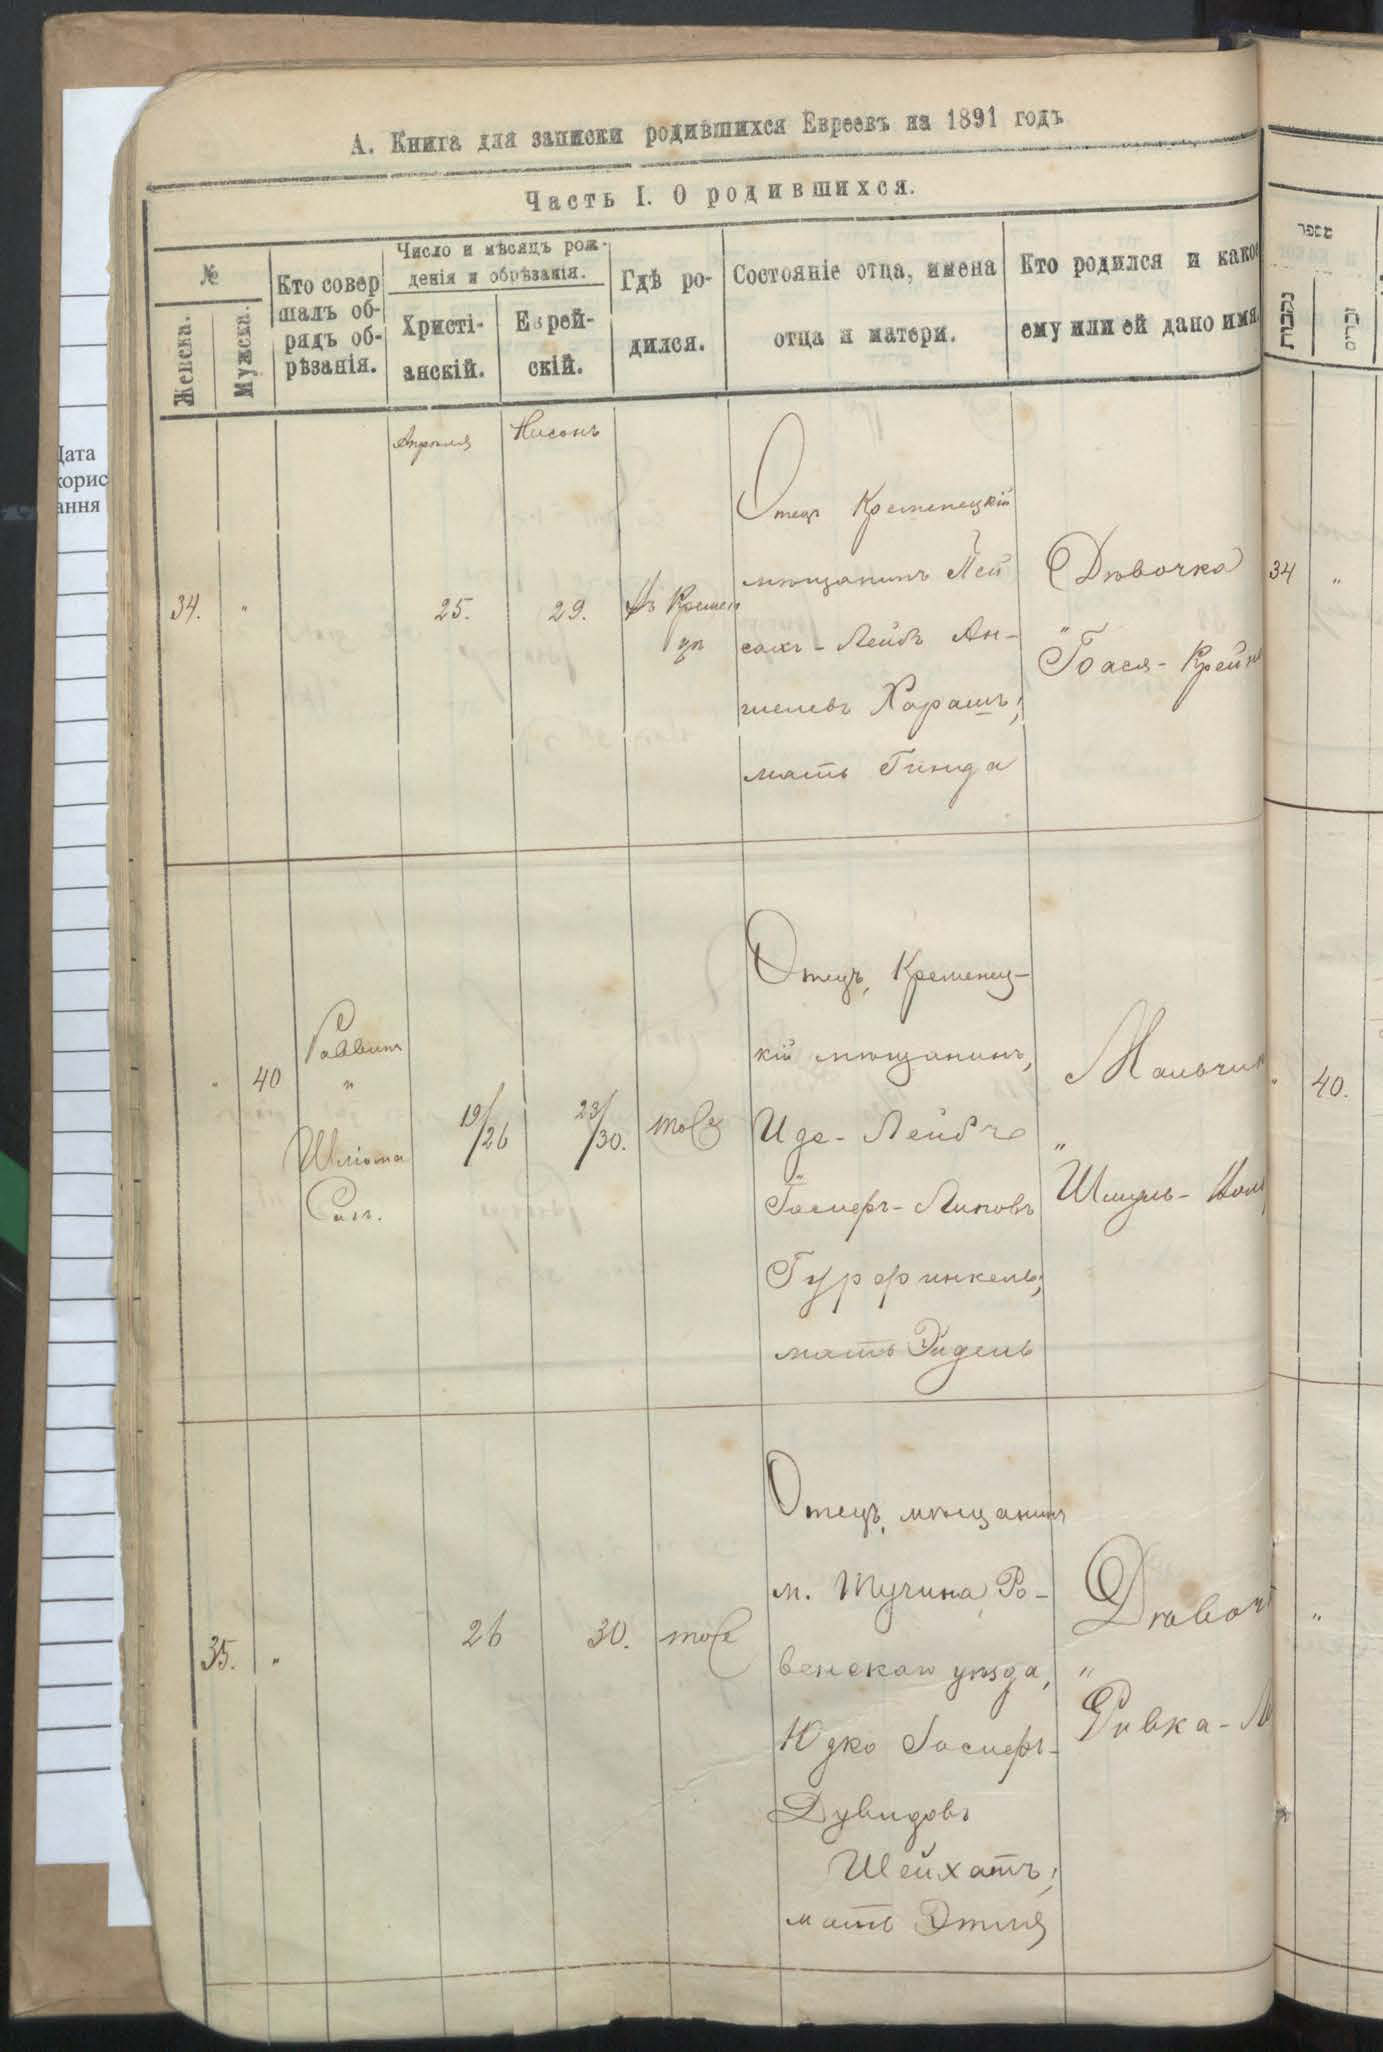 А. Книга для записки родившихся Евреевъ на 1891 годъ
Часть I. О родившихся.
№
Женска.
Мужска.
Кто совер
шалъ об-
рядъ об-
рѣзанія.
Число и мѣсяцъ рож-
денія и обрѣзанія.
Христі-
анскій.
Еврей-
скій.
Гдѣ ро-
дился.
Состояніе отца, имена
отца и матери.
Кто родился и какое
ему или ей дано имя.
מספר
נקבות
זכרים
Дата
корис
ання
Апрѣля
Нисонъ
34.
"
25.
29.
Въ Кремен
цѣ
Отецъ Кременецкій
мѣщанинъ Пей
сахъ-Лейбъ Ан-
шелевъ Харашъ;
мать Гинда
Дѣвочка
"Бася-Крейн
34
"
"
40
Раввинъ
и
Шліома
Сагъ.
19/26
23/30.
тоже
Отецъ, Кременец-
кій мѣщанинъ,
Иде-Лейбъ
Госиеръ-Липовъ
Гурфинкель;
мать Эйдель
Мальчик
"
Шмуль-
"
40.
35.
"
26
30.
тоже
Отецъ, мѣщанинъ
м. Тучина Ро-
венскаго уѣзда,
Юдко Іосиеръ-
Дувидовъ
Шейхатъ;
мать Этля
Дѣвоч
"
Ривка-
"